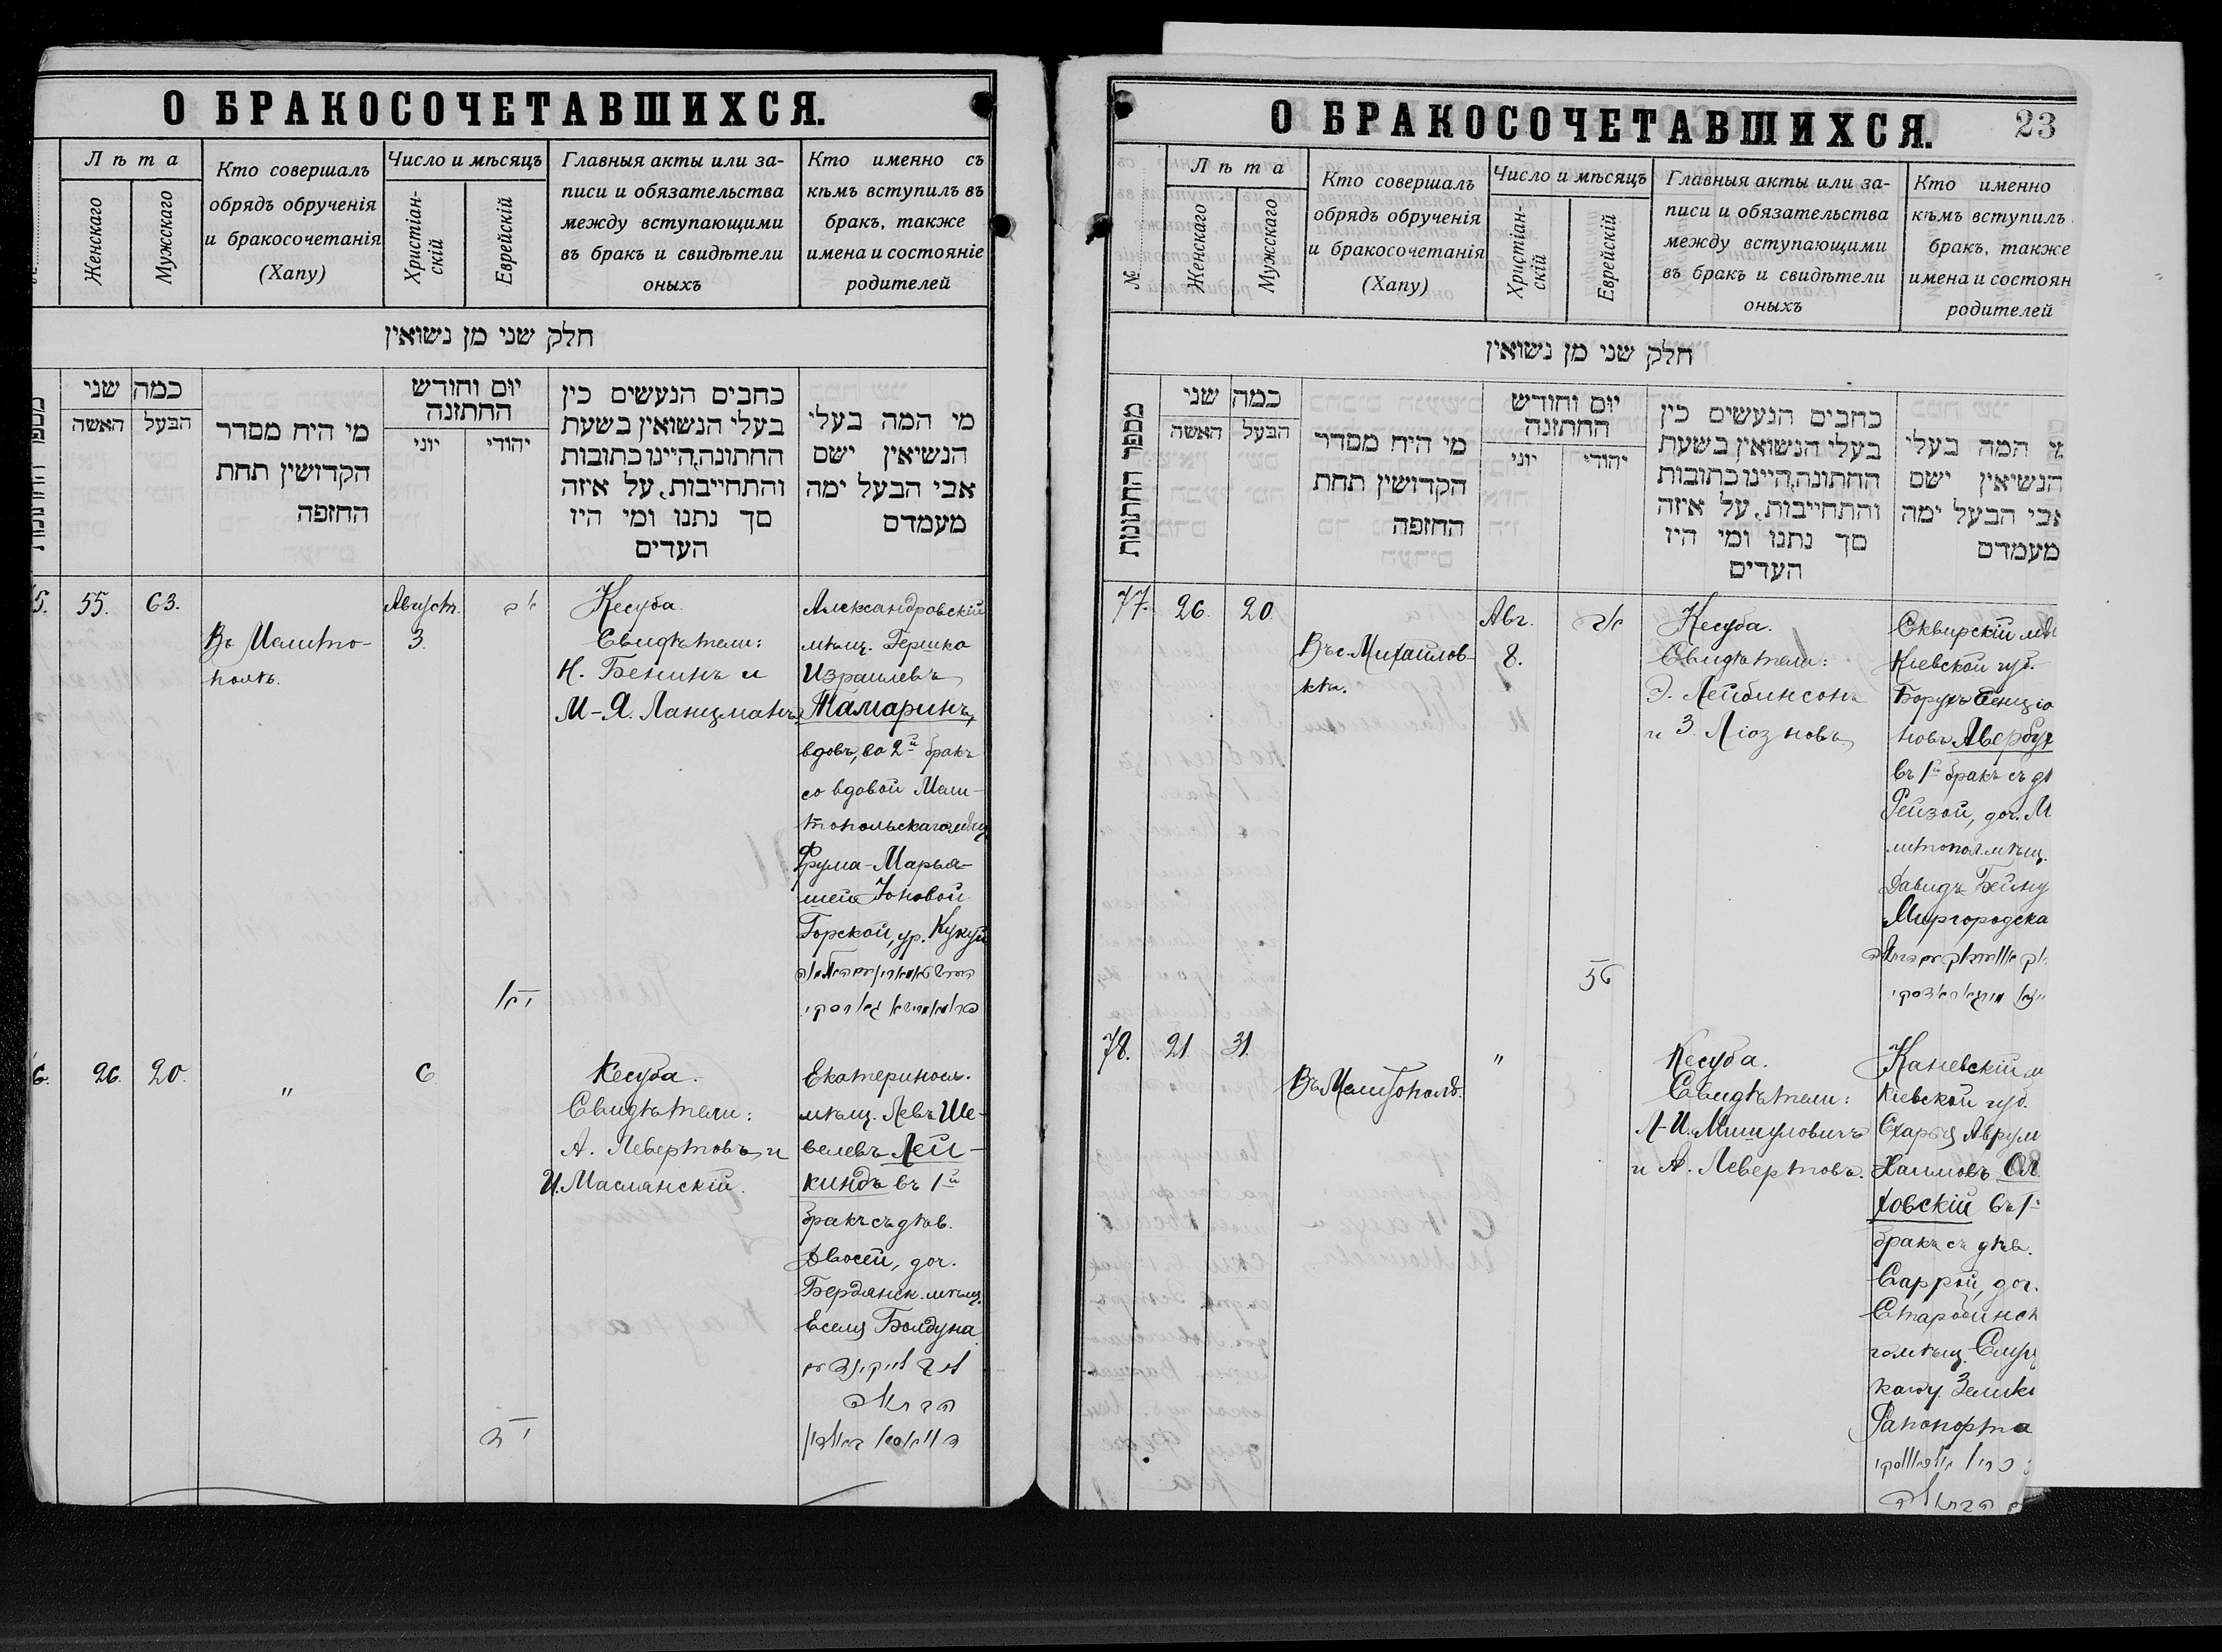 О БРАКОСОЧЕТАВШИХСЯ.
Лѣта
Женскаго
Мужскаго
Кто совершалъ
обрядъ обрученія
и бракосочетанія
(Хапу)
Число и мѣсяцъ
Христіан-
скій
Еврейскій
Главныя акты или за-
писи и обязательства
между вступающими
въ бракъ и свидѣтели
оныхъ
Кто именно съ
кѣмъ вступилъ въ
бракъ, также
имена и состояніе
родителей
חלק שני מן נשואין
כמה שני
הבעל
האשה
מי היח מסדר
הקדושין תחת
החזפה
יום וחודש
החתזנה
יוני
יהודי
כחבים הנעשים כין
בעלי הנשואין בשעת
החתונה,היינו כתובות
והתחייבות, על איזה
סך נתנו ומי היז
העדים
מי המה בעלי
הנשיאין ישם
אבי הבעל ימה
מעמדם
5.
55.
63.
Въ Мелито-
полѣ.
Август.
3.
Кесуба.
Свидѣтели:
Н. Бенинъ и
М-Я. Ланцманъ
Александровскій
мѣщ. Гершко
Израилевъ
Тамаринъ,
вдовъ, во 2й бракъ
со вдовой Мели-
топольскаго мѣщ.
Фрума-Марья-
шей Юновой
Горской, ур. Кукуй
6.
26.
20.
"
6
Кесуба.
Свидѣтели:
А. Левертовъ и
И. Маслянскій.
Екатеринос.
мѣщ. Левъ Ше-
велевъ Лей-
киндъ въ 1й
бракъ съ дѣв.
Двосей, доч.
Бердянск. мѣщ.
Еселя Болдуна
О БРАКОСОЧЕТАВШИХСЯ.
23
№
Лѣта
Женскаго
Мужскаго
Кто совершалъ
обрядъ обрученія
и бракосочетанія
(Хапу)
Число и мѣсяцъ
Христіан-
скій
Еврейскій
Главныя акты или за-
писи и обязательства
между вступающими
въ бракъ и свидѣтели
оныхъ
Кто именно
кѣмъ вступилъ
бракъ, также
имена и состоян
родителей
חלק שני מן נשואין
מספר החתונות
כמה שני
הבעל
האשה
מי היח מסדר
הקדושין תחת
החזפה
יום וחודש
החתזנה
יוני
יהודי
כחבים הנעשים כין
בעלי הנשואין בשעת
החתונה,היינו כתובות
והתחייבות, על איזה
סך נתנו ומי היז
העדים
המה בעלי
הנשיאין ישם
אבי הבעל ימה
מעמדם
77.
26.
20.
Въ с. Михайлов-
кѣ.
Авг.
8.
Кесуба.
Свидѣтели:
Э. Лейбинсонъ
и З. Ліозновъ
Сквирскій мѣ
Кіевской губ.
Борухъ Бенціо
новъ Авербух
въ 1й бракъ съ дѣ
Рейзой, доч. М
литопол. мѣщ.
Давидъ Бейну
Миргородска
78.
21.
31.
Въ Мелитополѣ.
"
Кесуба.
Свидѣтели:
Л-И. Мишуловичъ
и А. Левертовъ.
Каневскій м
Кіевской губ.
Аврум
Хаимовъ Ол
ховскій въ 1й
бракъ съ дѣв.
Саррой, доч.
Старобинск
го мѣщ. Слуц
Рапопорта